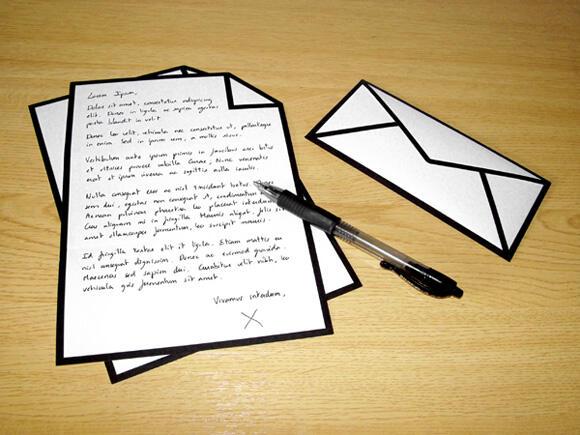 Lorem Ipsum,
Dolor sit amet, consectetur adipiscing
elit. Donec in ligula ac sapien egestas
porta blandit in velit.
Donec leo velit, vehicula nec consectetur et, pellentesque
in enim. Sed in ipsum sem, a mattis
Vestibulum ante ipsum primis in faucibus orci luctus
et ultrices posuere cubilia Curae; Nunc venenatis
erat et ipsum viverra ac sagittis nulla iaculis.
Nulla consequat eros ac nisl tincidunt tortor.
sem dui, egestas non consequat A, condimentum
Aenean pulvinar pharetra leo placerat interdum.
Cras aliquam mi in fringilla. Mauris aliquet, felis sit
amet ullamcorper fermentum, leo suscipit mauris.
Id fringilla tortor elit et ligula. Etiam mattis ex
nisl consequat dignissim. Donec ac euismod gravida.
Maecenas sed sapien dui. Curabitur elit nibh, leo
vehicula quis fermentum sit amet.
Vivamus interdum,
X